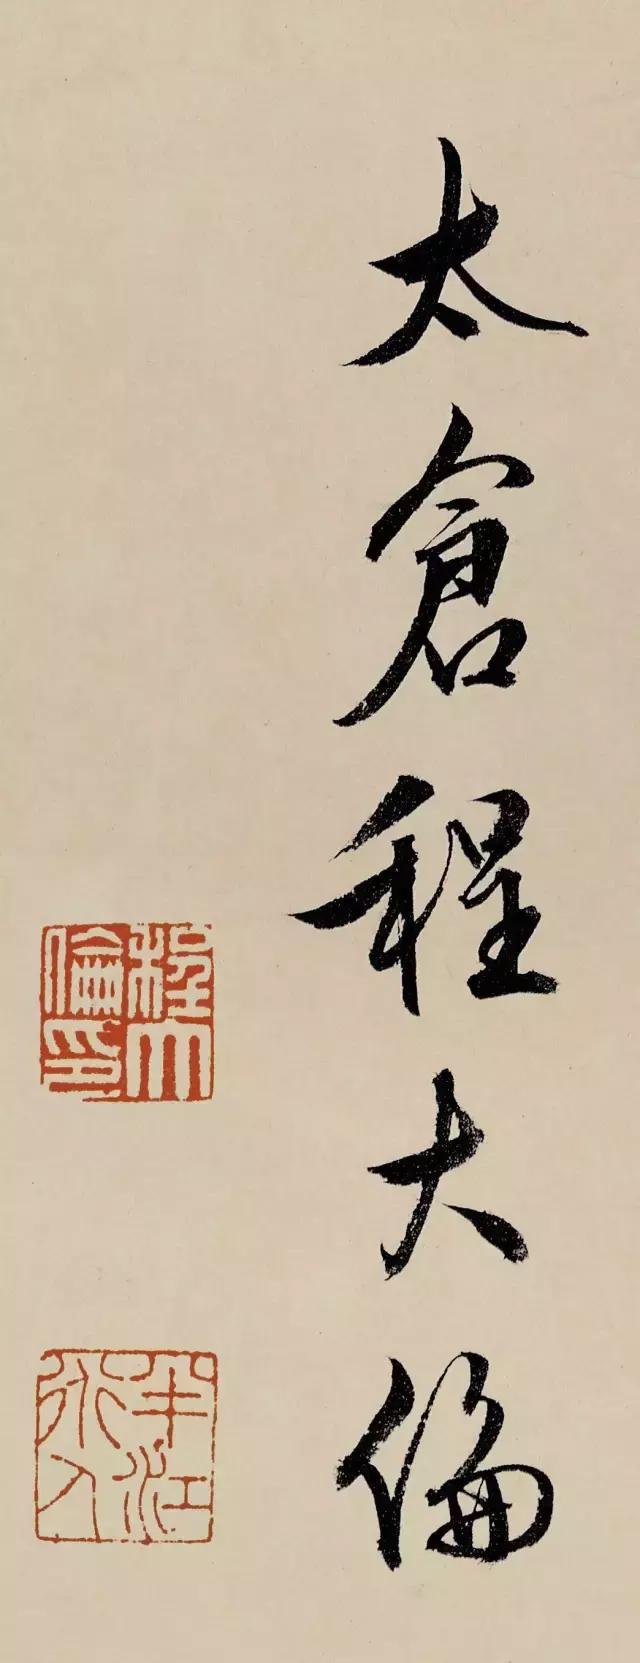 太倉程大倫
程大
倫印
半江